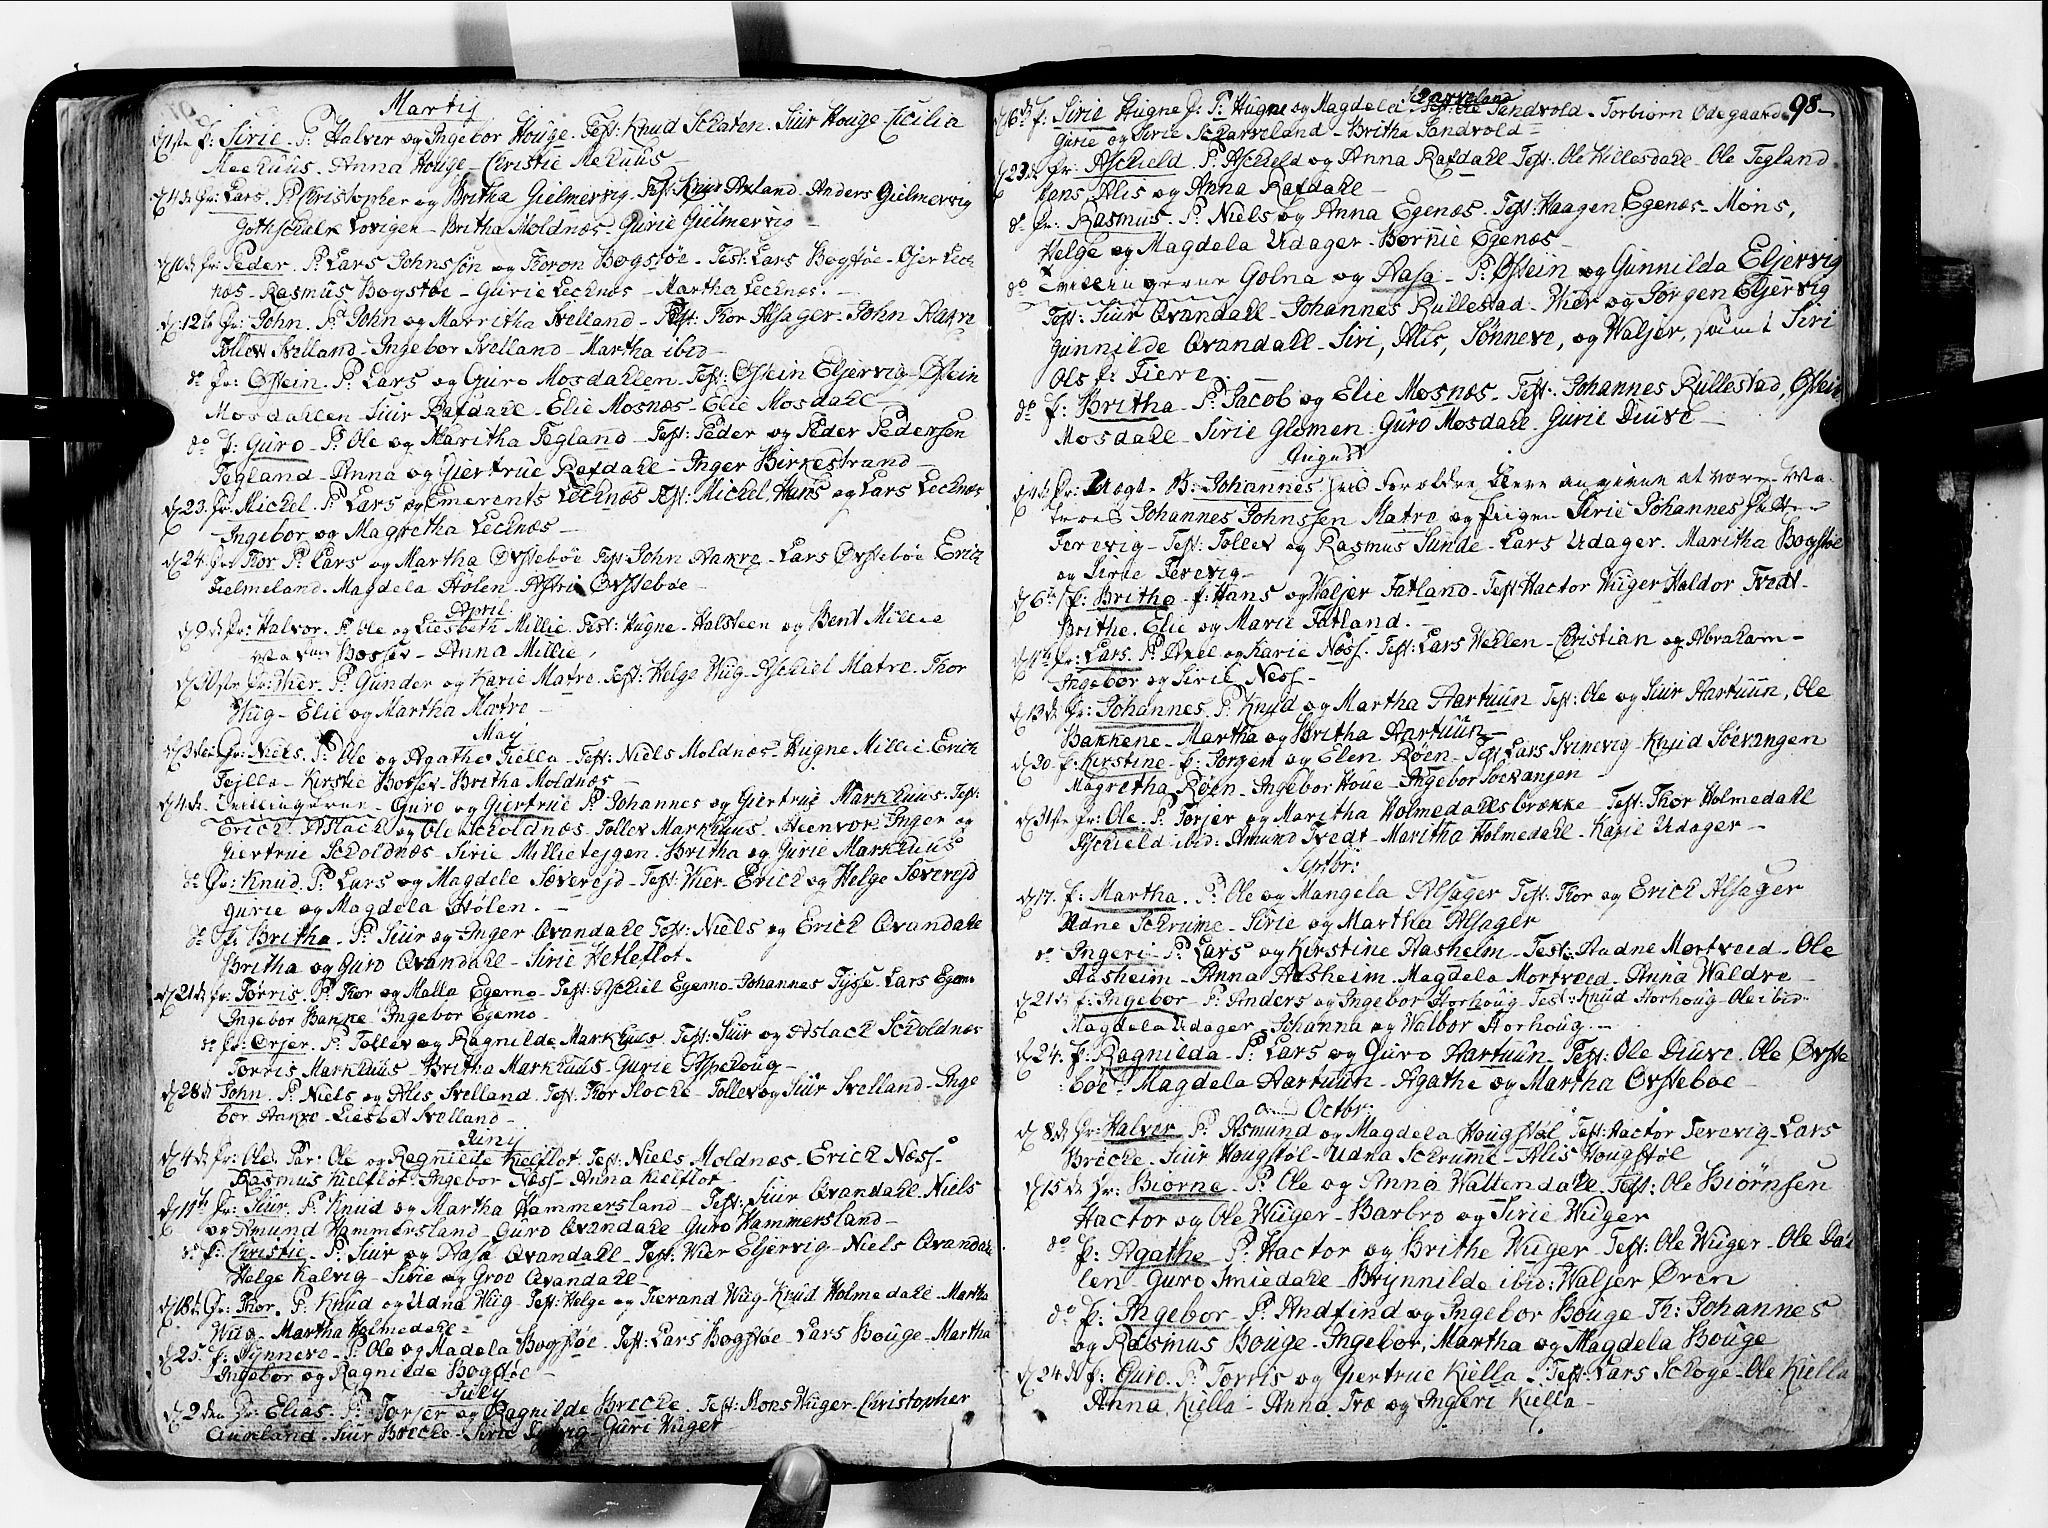 Martij
d 1ste p: Sirie. P: Halver og Ingebor Houge. Test: Knud Schaten. Siur Houge Cicilia
Meehuus. Anna Houge. Christie Mehuus
d 4de dr: Lars. P: Christopher og Britha Gielmervig. Test: Knud Axland. Anders Gielmervig
Gothschalk Lovigen. Britha Moldnæs. Gurie Gielmervig
d 10de dr: Peder. P: Lars Johnssøn og Thoron Bogstøe. Test: Lars Bogstøe. Lech
næs. Rasmus Bogstøe. Gurie Lechnæs. Martha Lechnæs.
d: 12te dr: John. P: John og Marritha Svelland. Test: Thor Alsager. John
Tollev Svelland. Ingebor Svelland. Martha ibid
do dr: Østein. P: Lars og Guro Mosdallen. Test: Østein Eljervig. Østein
Mosdahlen. Siur Rafdahl. Elie Mosnæs. Elie Mosdahl
do p: Guro. P: Ole og Maritha Tegland. Test: Peder og Peder Pedersen
Tegland. Anna og Giertrue Rafdahl. Inger Birkestrand
d 23. dr: Michel. P: Lars og Emerents Lechnæs Test: Michel, Hans og Lars Lechnæs
Ingebor og Magretha Lechnæs
d 24. dr: Thor. P: Lars og Martha Øvstebøe Test: John Aakre. Lars Øvstebøe Erich
Fielmeland. Magdela Hølen. Astri Øvstebøe
April
d 9de dr: Halvor. P: Ole og Liesbeth Millie. Test: Hugne. Halsteen og Bent Millie
Bosser. Anna Millie
d 30ste dr: Wier. P: Gunder og Karie Matre. Test: Helge Wug. Aschiel Matre. Thor
Wug. Elie og Martha Matre
May
d 3de dr: Niels. P: Ole og Agathe Fiella. Test: Niels Moldnæs. Hugne Millie Erich
Fejlla. Kirstie Bosser. Britha Moldnæs
d 4de Tvillingerne Guro og Giertrue P: Johannes og Giertrue Markhuus. Test:
Erich. Aslach og Ole Scholdnæs. Tollev Markhuus. Steenvor. Inger og
Giertrue Scholdnæs. Sirie Millietejgen. Britha og Gurie Markhuus
do dr: Knud. P: Lars og Magdele Sæverejd. Test: Wier. Erich og Helge Sæverejd
Gurie og Magdela Hølen.
do p: Britha. P: Siur og Inger Qvandahl Test: Niels og Erich Qvandahl
Britha og Guro Qvandahl. Sirie Hetleflot.
d 21de dr: Torris. P: Thor og Malla Egemo. Test: Aschiel Egemo. Johannes Tysse. Lars Egemo
Ingebor Bakke. Ingebor Egemo.
do dr: Ørjer. P: Tollev og Ragnilde Markhuus. Test: Siur og Aslach Scholdnæs
Torris Markhuus. Britha Markhuus. Gurie
d 28de John. P: Niels og Alis Svelland. Test: Thor Stoche. Tollev og Siur Svelland. Inge
bor Aakre. Liesbet Svelland
Junij
d 4de dr: Ole. Par: Ole og Ragnilde Kielflot. Test: Niels Moldnæs. Erich Næss.
Rasmus Kielflot. Ingebor Næss. Anna Kielflot
d 11te dr: Siur. P: Knud og Martha Hammersland. Test: Siur Qvandahl. Niels
og Amund Hammersland. Guro Qvandahl Guro Hammersland
do p: Christie. P: Siur og Aasa Qvandahl. Test: Wier Eljervig. Niels Qvandahl
Helge Kalvig. Sirie og Groe Qvandahl
d 18de dr: Thor. P: Knud og Udna Wug Test: Helge og Tierand Wug. Knud Holmedahl. Martha
Wug. Martha Holmedahl
d 25. p: Synneve. P: Ole og Madela Bogstøe. Test: Lars Bogstøe. Lars Bouge. Martha
Ingebor og Ragnilde Bogstøe
July
d 2den dr: Elias. P: Torjer og Ragnilde Breche. Test: Mons Wuger. Christopher
Aureland. Siur Breche. Sirie Guri Wuger
98.
d 16de p: Sirie Hugne dr P: Hugne og Magdela Scharveland Test: Ole Sandvold. Torbiørn Ødegaard
Gurie og Sirie Scharveland. Britha Sandvold
d 23de dr: Aschield. P: Aschield og Anna Rafdahl Test: Ole Hillesdahl. Ole Tegland
Hans, Alis og Anna Rafdahl
do dr: Rasmus. P: Niels og Anna Egenæs. Test: Haagen Egenæs. Mons,
Helge og Magdela Udager. Børnie Egenæs
do Tvillingerne Golna og Aasa. P: Østein og Gunnilda Eljervig
Test: Siur Qvandahl. Johannes Rullestad. Wier og Jørgen Eljervig
Gunnilde Qvandahl. Siri, Alis, Sønneve, og Waljer, samt Siri
Ols d: Fiere
do p: Britha. P: Jacob og Elie Mosnæs. Test: Johannes Rullestad, Østein
Mosdahl. Sirie Glomen. Guro Mosdahl. Gurie Diuve
August
d 4de dr: Uægt. B: Johannes hvis Forældre bleve angivne at være. Ma
Johannes Johnssen Matre og pigen Sirie Johannes
Ferevig. Test: Tollev og Rasmus Sunde. Lars Udager. Maritha Bogstøe
og Sirie Ferevig
d 6te p: Britha. P: Hans og Waljer Fatland. Test Hactor Wuger Haldor Tvedt.
Brithe, Elie og Marie Fatland.
d 11te dr: Lars. P: Axel og Karie Næss. Test: Lars Wehlen. Christian og Abraham
Ingebor og Sirie Ness
d 13de dr: Johannes. P: Knud og Martha Aartuun Test: Ole og Siur Aartuun, Ole
Bakkene. Martha og Britha Aartuun
d 20. p: Kirstine. P: Jørgen og Elen Røen. Test: Lars Svinevig. Knud Soevangen
Magretha Røen. Ingebor Houe. Ingebor Soevangen
d 31ste dr: Ole. P: Torjer og Maritha Holmedahlsbrække. Test: Thor Holmedahl
Aschield ibid: Amund Tvedt. Maritha Holmedahl. Karie Udager
Septbr:
d 17. p: Martha. P: Ole og Mangela Alsager Test: Thor og Erich Alsager
Udne Schrume. Sirie og Martha Alsager
do Ingeri P: Lars og Kirstine Aasheim. Test: Aadne Mortveid. Ole
Aasheim. Anna Aasheim. Magdela Mortveid. Anna Waldre
d 21de p: Ingebor. P: Anders og Ingebor Storhoug. Test: Knud Storhoug Ole ibid.
Magdela Udager. Johanna og Walbor Storhoug.
d 24. p: Ragnilda. P: Lars og Guro Aartuun. Test: Ole Diuve. Ole Øvste
bøe. Magdela Aartuun. Agathe og Martha Øvstebøe
Octbr:
d 8de dr: Halver P: Asmund og Magdela Hougstøl Test: Hactor Ferevig. Lars
Breche. Siur Hougstøl. Udna Schrume. Alis Hougstøl
d 15de dr: Biørne. P: Ole og Anna Wattendahl. Test: Ole Biørnsen
Hactor og Ole Wuger. Barbro og Sirie Wuger
do p: Agathe P: Hactor og Brithe Wuger. Test: Ole Wuger. Ole Da
len. Guro Smiedahl. Brynnilde ibid: Waljer Øren
do p: Ingebor P: Andfind og Ingebor Bouge T: Johannes
og Rasmus Bouge. Ingebor, Martha og Magdela Bouge
d 24de p: Guro. P: Torris og Giertrue Kiella. Test: Lars Schoge. Ole Kiella
Anna Kiella. Anna Træ og Ingleri Kiella